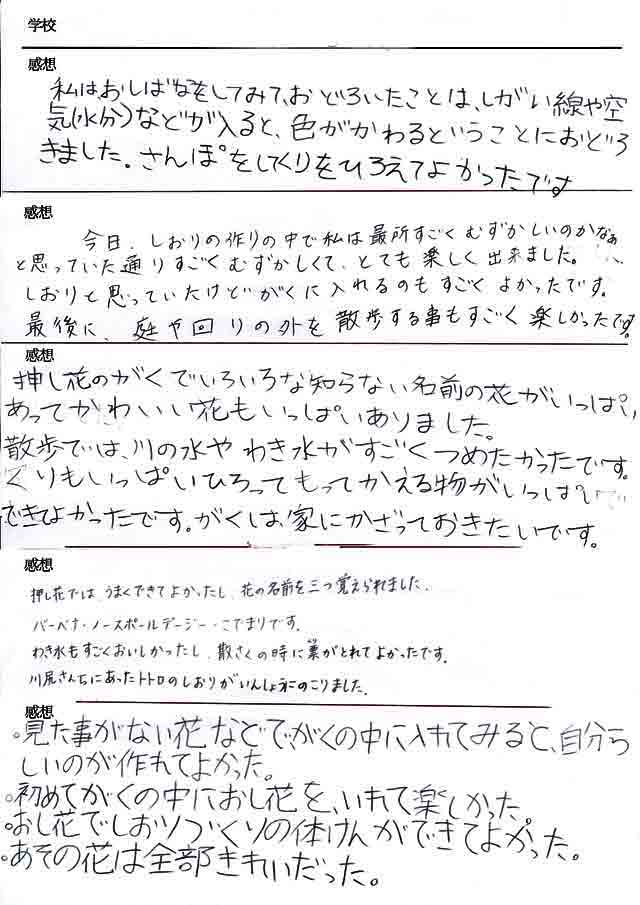 学校
感想
私はおしばなをしてみて、おどろいたことは、しがい線や空
気(水分)などが入ると、色がかわるということにおどろ
きました。さんぽをしてくりをひろえてよかったです
感想
今日、しおりの作りの中で私は最所すごくむずかしいのかなぁ
と思っていた通りすごくむずかしくて、とても楽しく出来ました。
しおりと思っていたけどがくに入れるのもすごくよかったです。
最後に、庭や回りの外を散歩する事もすごく楽しかったです。
感想
押し花のがくでいろいろな知らない名前の花がいっぱい
あってかわいい花もいっぱいありました。
散歩では、川の水やわき水がすごくつめたかったです。
くりもいっぱいひろってもってかえる物がいっぱい
できてよかったです。がくは、家にかざっておきたいです。
感想
押し花では、うまくできてよかったし、花の名前を三つ覚えられました。
バーベナ・ノースポールデージー・こでまりです。
わき水もすごくおいしかったし、散さくの時に栗がとれてよかったです。
川尻さんちにあったトトロのしおりがいんしょうにのこりました。
感想
。見た事がない花などで、がくの中に入れてみると、自分ら
しいのが作れてよかった。
。初めてがくの中におし花を、いれて楽しかった。
。おし花でしおりづくりの体けんができてよかった。
。あその花は全部きれいだった。